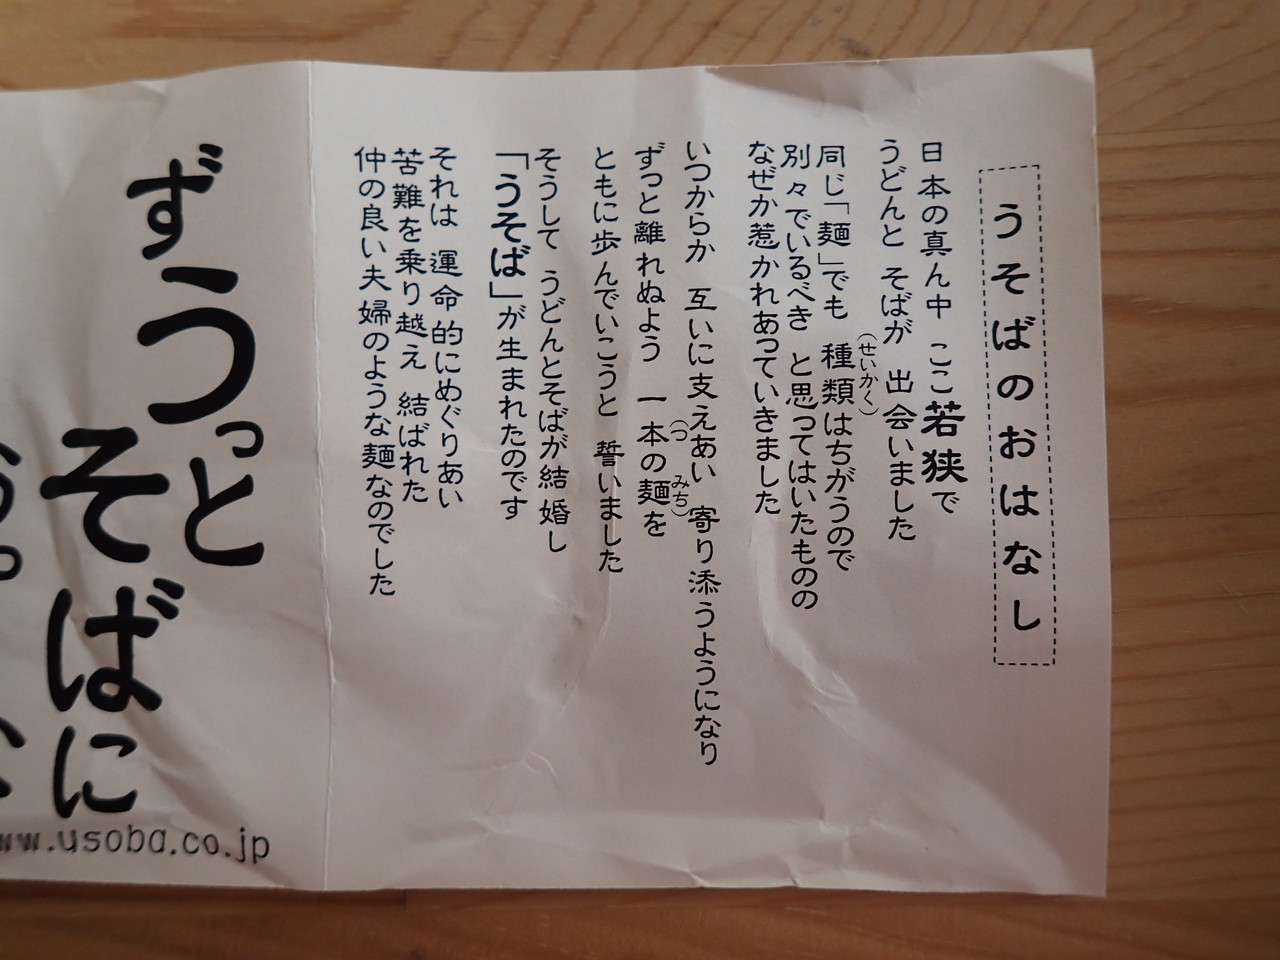 うそばのおはなし
日本の真ん中 ここ若狭で
うどんと そばが 出会いました
同じ「麺」でも 種類(せいかく)はちがうので
別々でいるべき と思ってはいたものの
なぜか惹かれあっていきました
いつからか 互いに支えあい 寄り添うようになり
ずっと離れぬよう 一本の麺(つ みち)を
ともに歩んでいこうと 誓いました
そうして うどんとそばが結婚し
「うそば」が生まれたのです
それは 運命的にめぐりあい
苦難を乗り越え 結ばれた
仲の良い夫婦のような麺なのでした
ずうっと
そばに
ww.usoba.co.jp